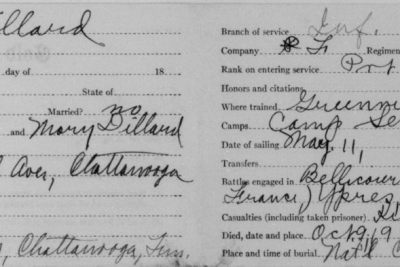 illard
Branch of service Inf.
Company F, Regimen
day of 18
Rank on entering service Prt
State of
Honors and citations
Married? no
Where trained Greenvi
and Mary Dillard
Camps Camp Se
Date of sailing May 11,
Aver, Chattanooga
Transfers
Battles engaged in Bellicour
France,) Ypres
Casualties (including taken prisoner)
Died, date and place Oct 9, 19
, Chattanooga, Tenn.
Place and time of burial Nat'l C